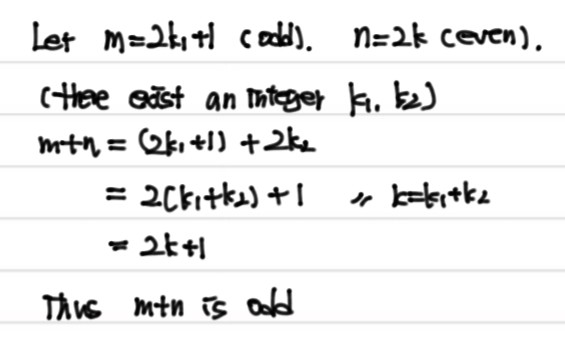 Let m=2k₁+1 (odd). n=2k (even).
(there exist an integer k₁, k₂)
m+n = (2k₁+1) + 2k₂
= 2(k₁+k₂) + 1 〃 k=k₁+k₂
= 2k+1
Thus m+n is odd